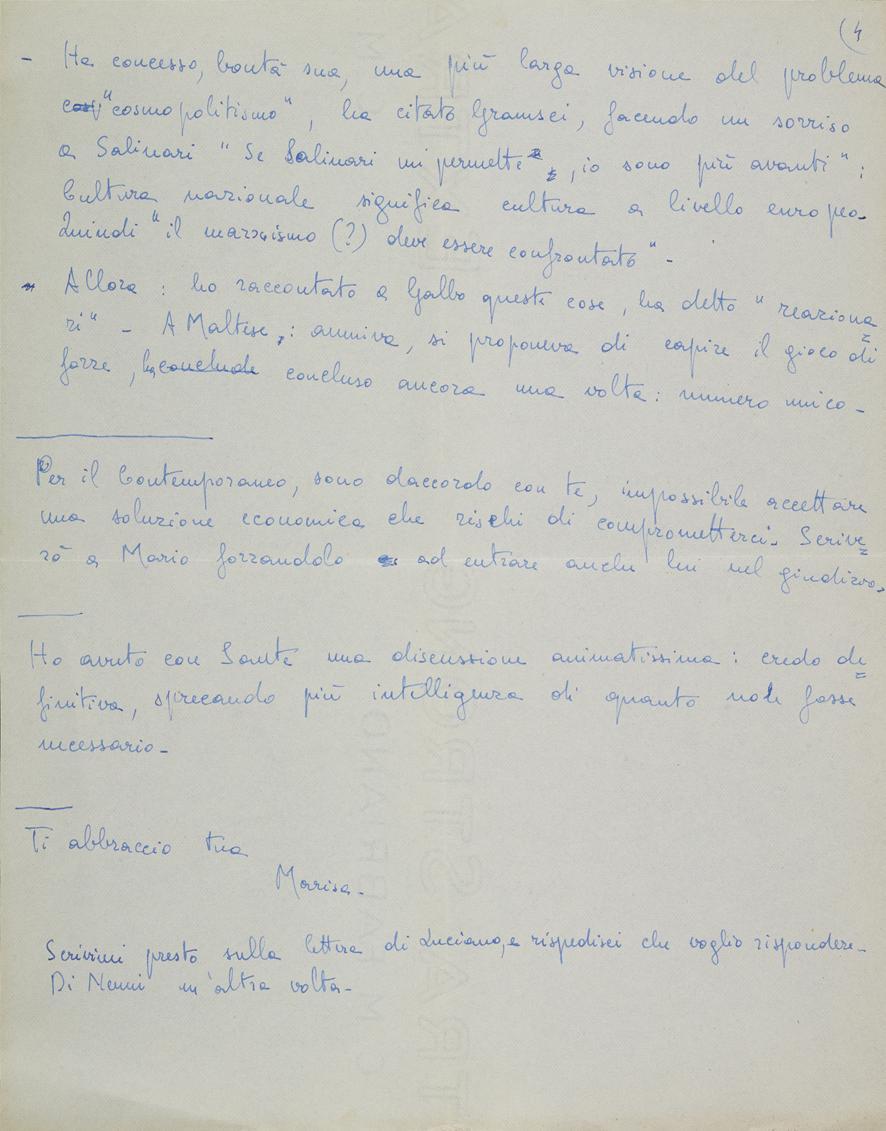 (4
- Ha concesso, bontà sua, una più larga visione del problema
"cosmopolitismo", ha citato Gramsci, facendo un sorriso
a Salinari "Se Salinari mi permette, io sono più avanti":
Cultura nazionale significa cultura a livello europeo.
Quindi "il marxismo (?) deve essere confrontato" -
- Allora: ho raccontato a Gallo queste cose, ha detto "reaziona=
ri" - A Maltese: annuiva, si proponeva di capire il gioco di
forze, ha conclude concluso ancora una volta: numero unico -
Per il Contemporaneo, sono daccordo con te, impossibile accettare
una soluzione economica che rischi di comprometterci. Scrive=
rò a Mario forzandolo ad entrare anche lui nel giudizio.
Ho avuto con Sante una discussione animatissima: credo de=
finitiva, sprecando più intelligenza di quanto non fosse
necessario -
Ti abbraccio tua
Marisa -
Scrivimi presto sulla lettera di Luciano, e rispedisci che voglio rispondere -
Di Nenni un'altra volta -